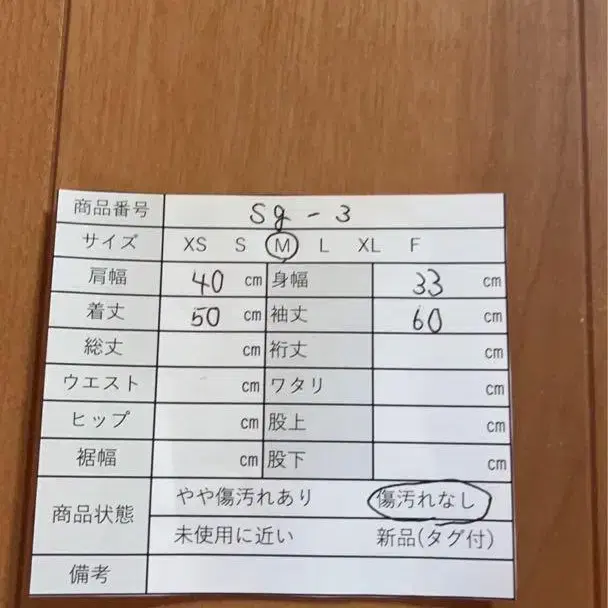 商品番号 Sg - 3
サイズ XS S M L XL F
肩幅 40 cm 身幅 33 cm
着丈 50 cm 袖丈 60 cm
総丈 cm 裄丈 cm
ウエスト cm ワタリ cm
ヒップ cm 股上 cm
裾幅 cm 股下 cm
商品状態 やや傷汚れあり 傷汚れなし
未使用に近い 新品(タグ付)
備考